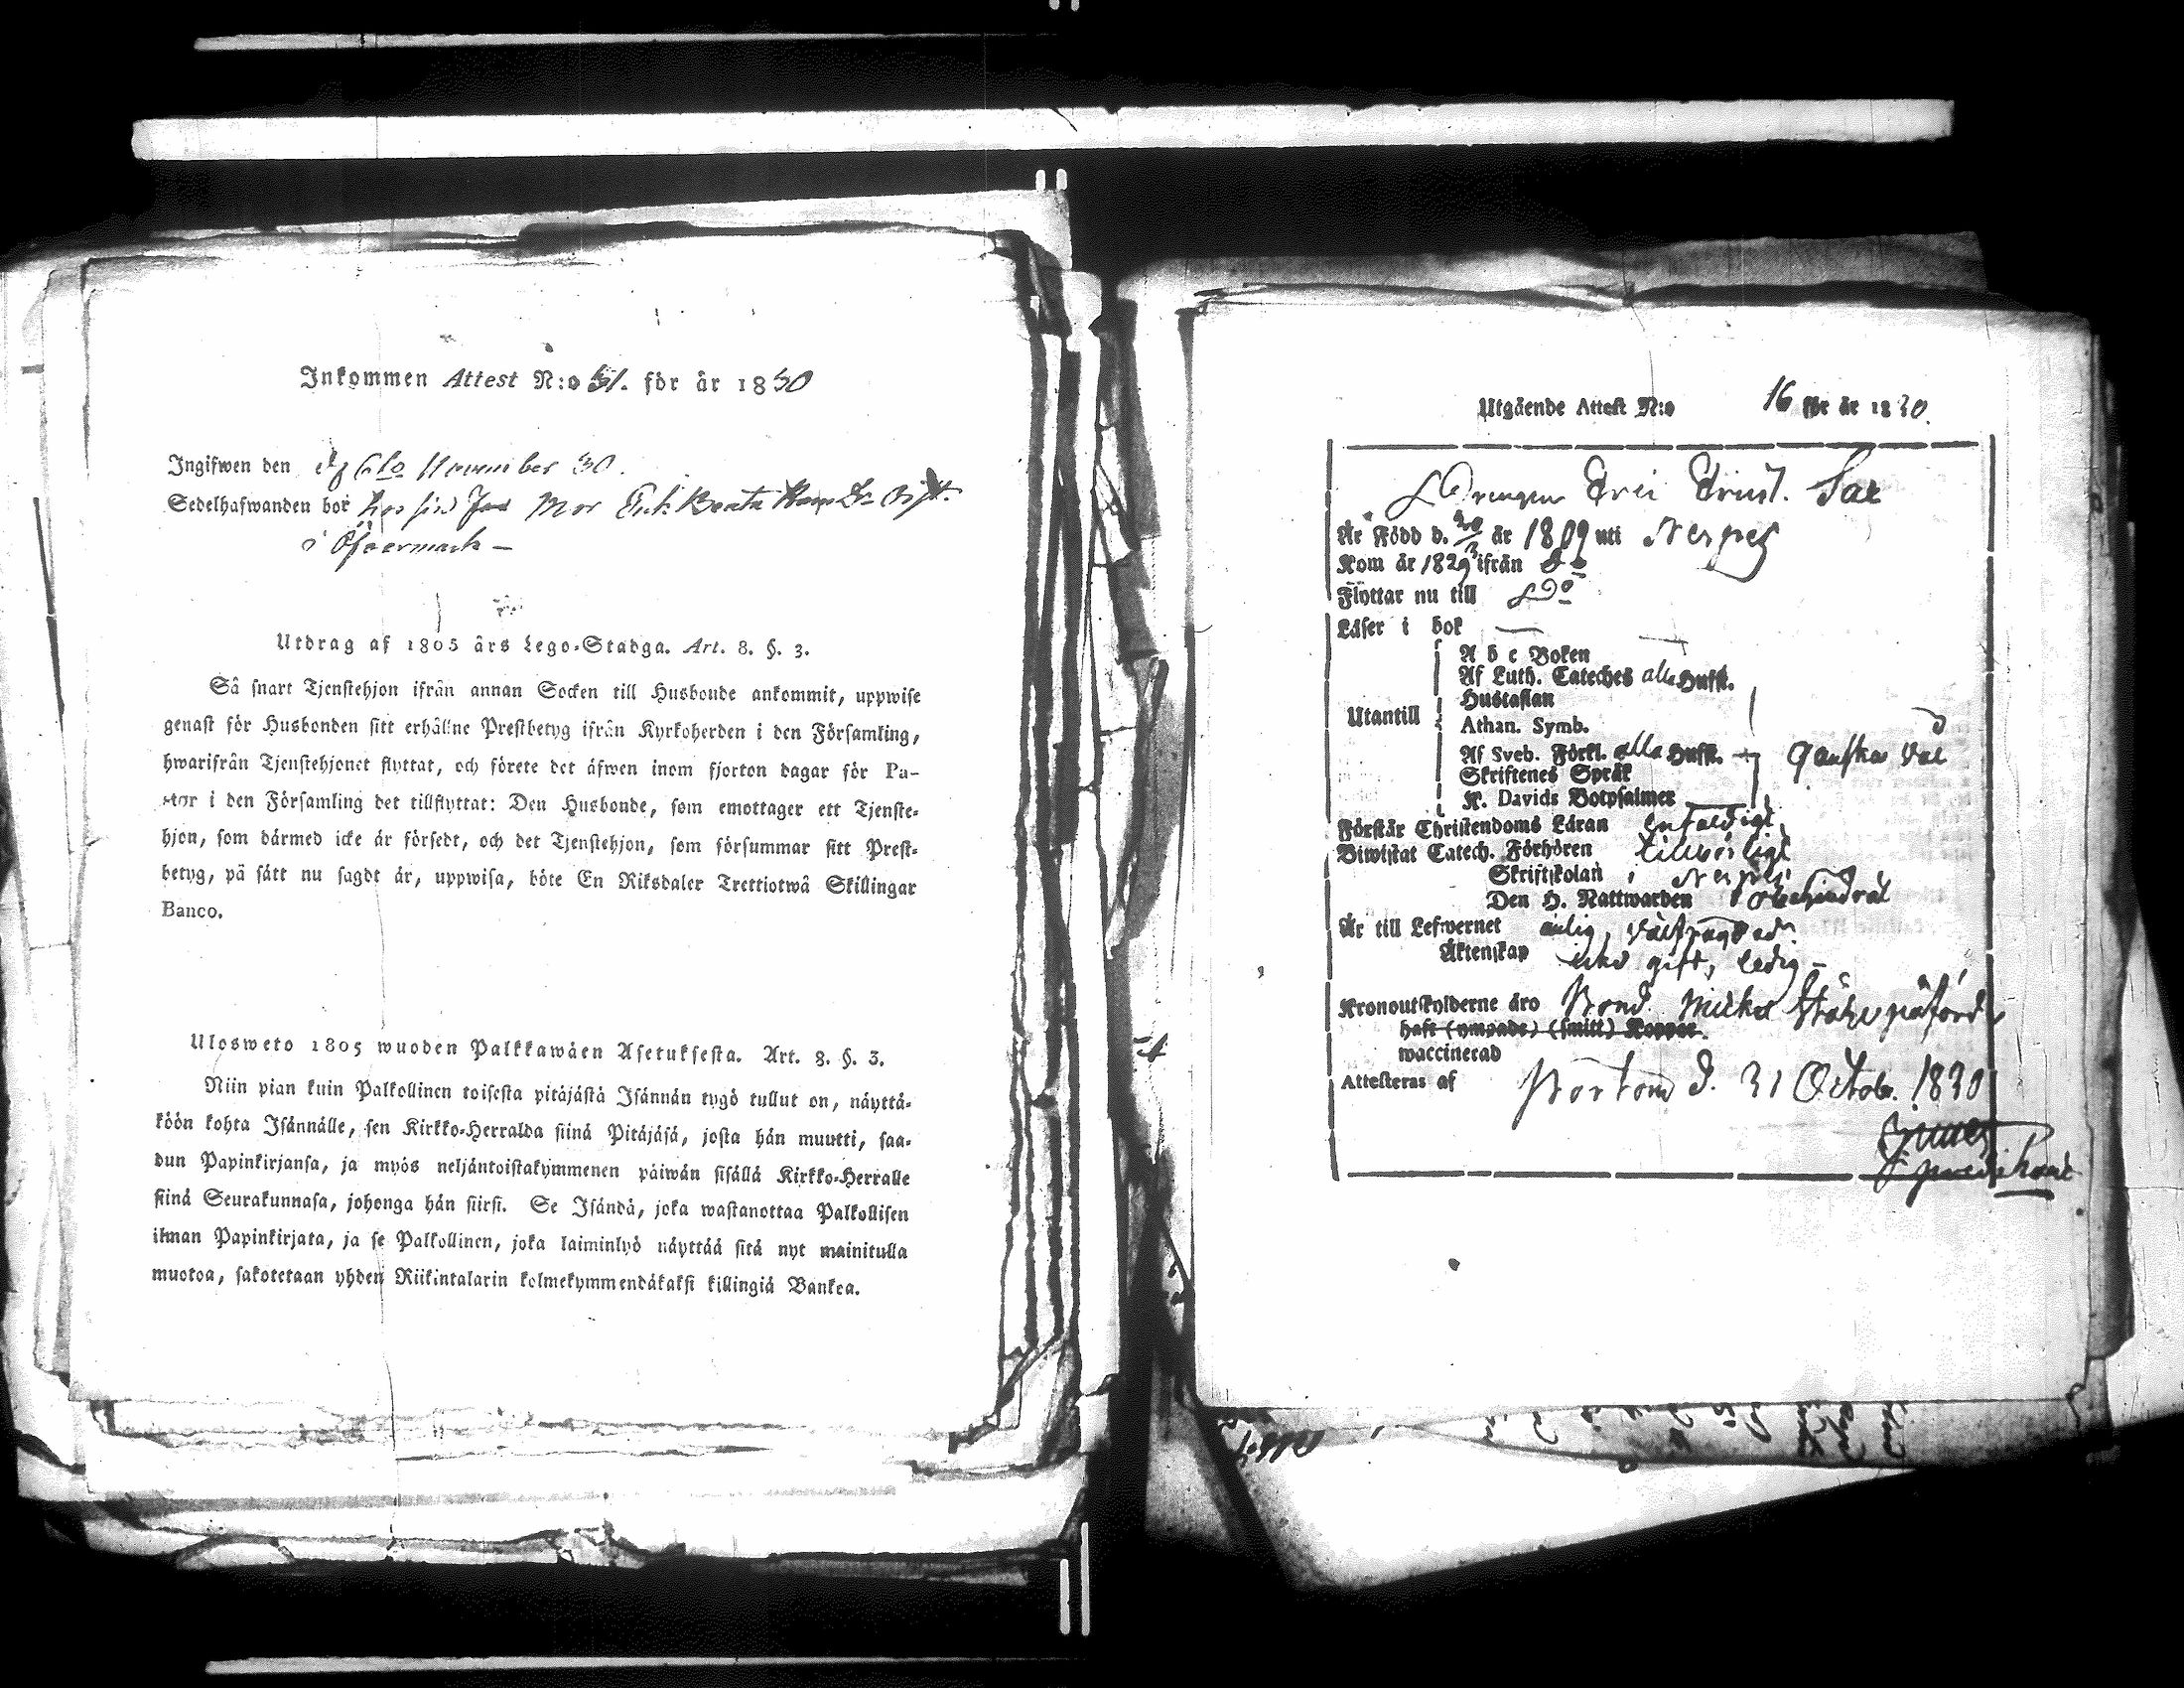 Inkommen Attest N:o 51. för år 1830
Ingifwen den 6to November 30.
Sedelhafwanden bor hos sin Mor Enk. Beata
i Öfvermark –
Utdrag af 1805 års Lego-Stadga. Art. 8. §. 3.
Så snart Tjenstehjon ifrån annan Socken till Husbonde ankommit, uppwise
genast för Husbonden sitt erhållne Prestbetyg ifrån Kyrkoherden i den Församling,
hwarifrån Tjenstehjonet flyttat, och förete det äfwen inom fjorton dagar för Pa-
stor i den Församling det tillflyttat: Den Husbonde, som emottager ett Tjenste-
hjon, som därmed icke är försedt, och det Tjenstehjon, som försummar sitt Prest-
betyg, på sätt nu sagdt är, uppwisa, böte En Riksdaler Trettiotwå Skillingar
Banco.
Ulosweto 1805 wuoden Palkkawäen Asetuksesta. Art. 8. §. 3.
Niin pian kuin Palkollinen toisesta pitäjästä Isännän tygö tullut on, näyttä-
köön kohta Isännälle, sen Kirkko-Herralda siinä Pitäjäsä, josta hän muutti, saa-
dun Papinkirjansa, ja myös neljäntoistakymmenen päiwän sisällä Kirkko-Herralle
siinä Seurakunnasa, johonga hän siirsi. Se Isändä, joka wastanottaa Palkollisen
ilman Papinkirjata, ja se Palkollinen, joka laiminlyö näyttää sitä nyt mainitulla
muotoa, sakotetaan yhden Riikintalarin kolmekymmendäkaksi killingiä Bankea.
Utgående Attest N:o 16 för år 1830.
Drengen Eric Erics.
År Född d. 30/3 år 1809 uti Nerpes
Kom år 1829 ifrån Do
Flyttar nu till Do
Läser i bok —
A b c Boken
Af Luth. Cateches alla Hufst.
Hustaflan
Utantill
Athan. Symb.
Af Sveb. Förkl. alla Hufst. ganska väl
Skriftenes Språk
K. Davids Botpsalmer
Förstår Christendoms Läran enfaldigt
Biwistat Catech. Förhören tillbörligt
Skriftskolan i Nerpes
Den H. Nattwarden obehindrat
Är till Lefwernet ärlig, välfrägdad
Äktenskap icke gift, ledig –
Kronoutskylderne äro Bond. Mickel påförde
haft (ympade) (smitt) Koppor.
waccinerad
Attesteras af Pörtom d. 31 Octob. 1830